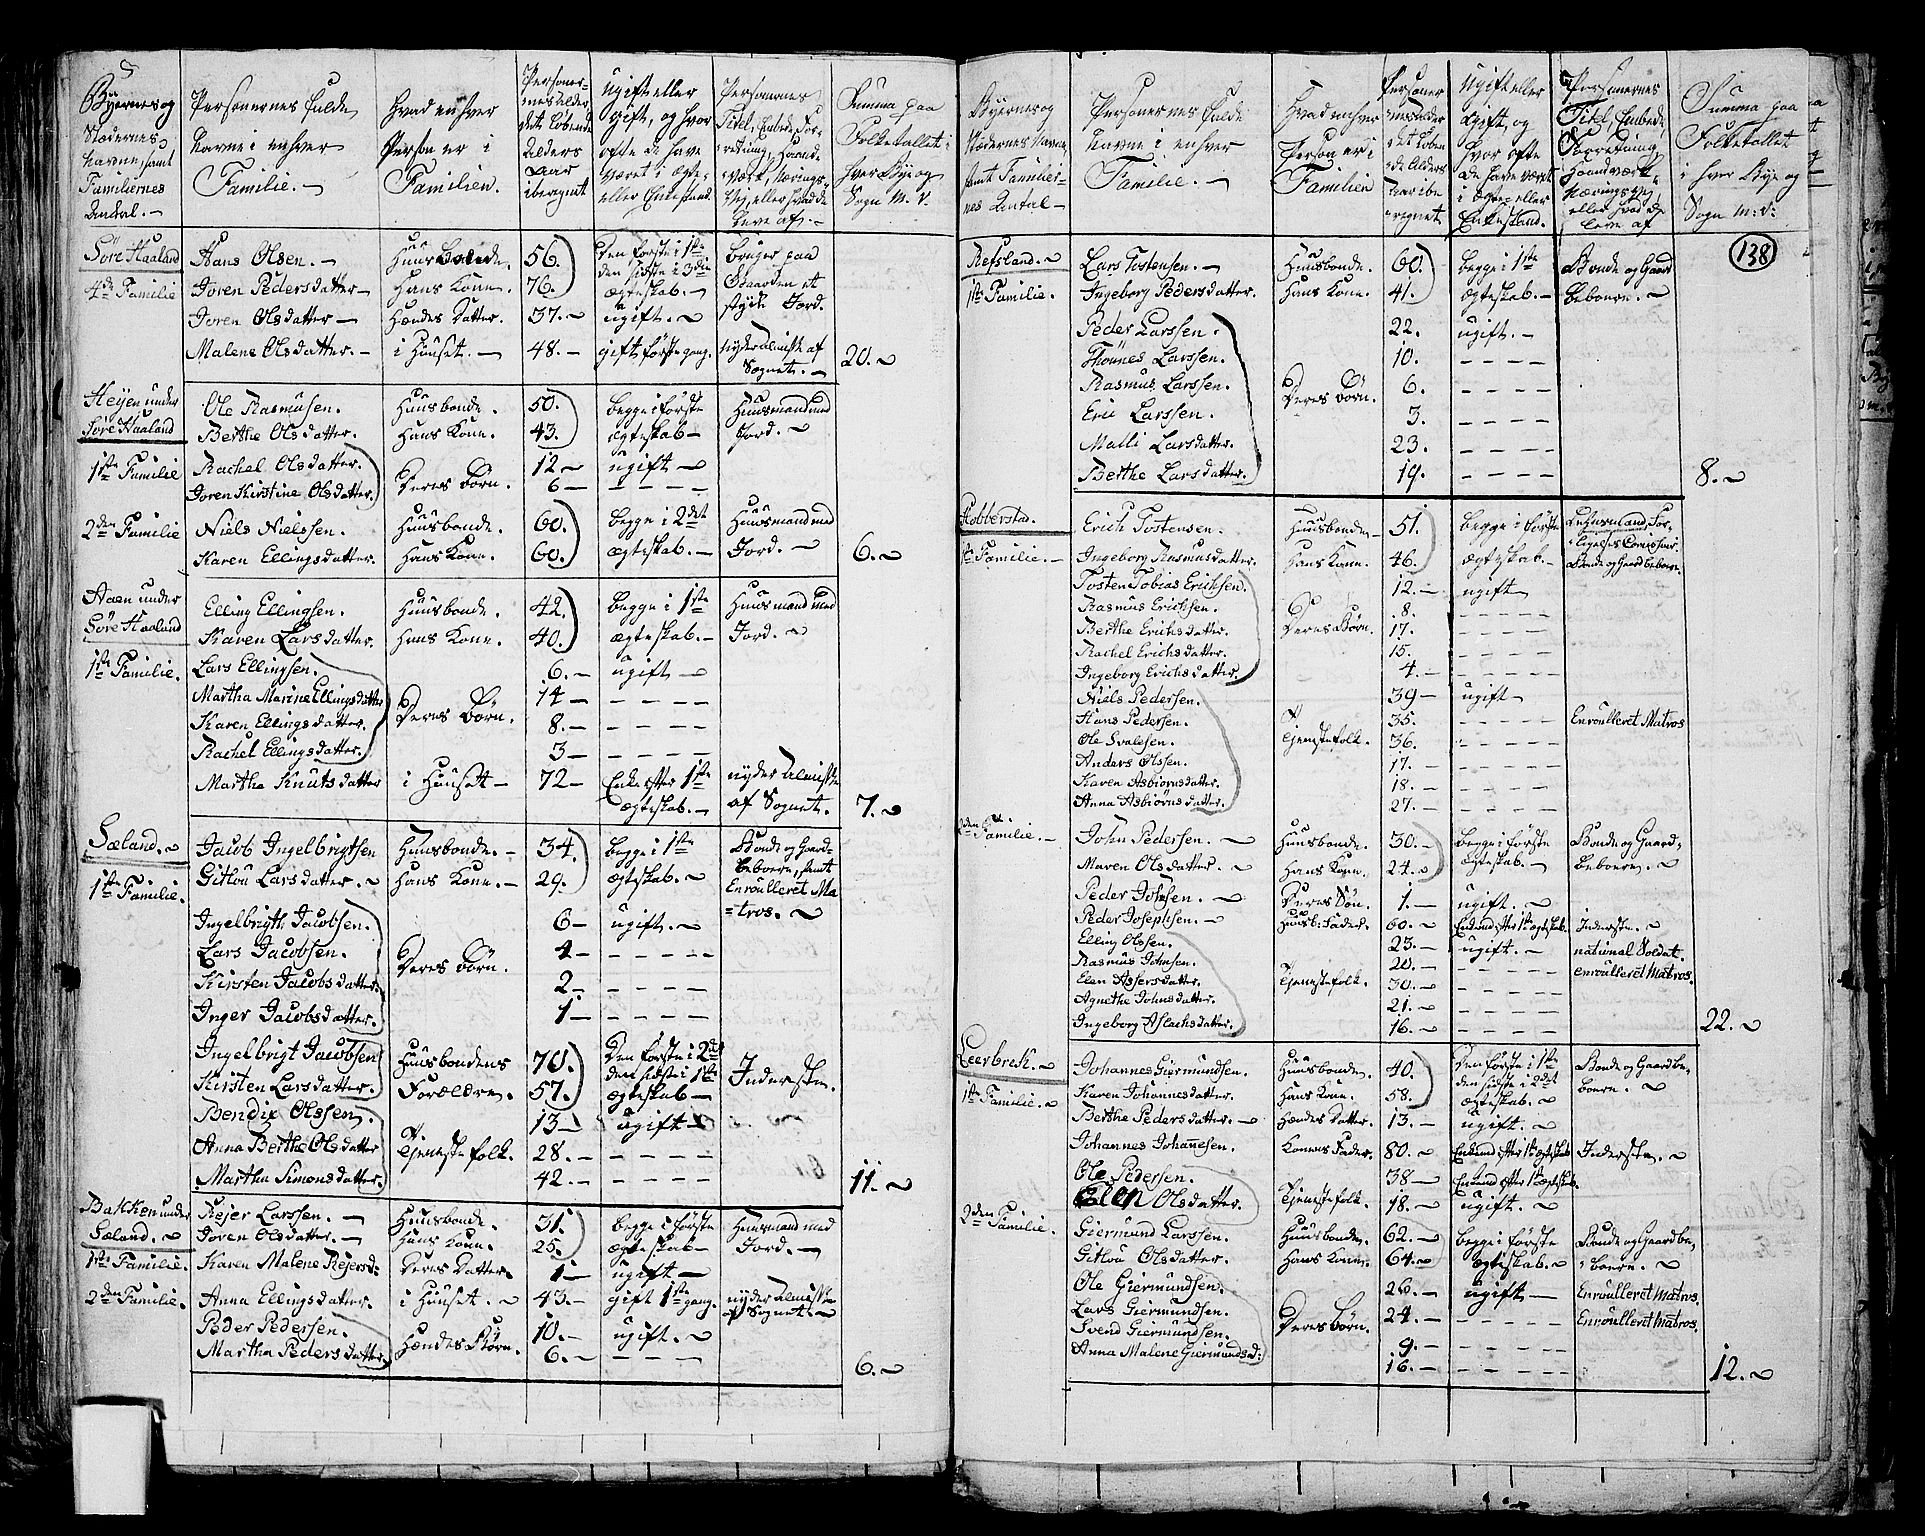 Byernes og
Stedernes
Navne, samt
Familiernes
Antal. —
Personernes fulde
Navne i enhver
Familie. —
Hvad enhver
Person er i
Familien.
Personer-
nes Alder,
det løbende
Alders
Aar
iberegnet
Ugift eller
gift, og hvor
ofte de have
været i Ægte-
eller Enkestand.
Personernes
Titel, Embede, For-
retning, Haand-
værk, Nærings-
Vej, eller hvad de
leve af. —
Summa paa
Folketallet i
hver Bye og
Sogn M. V.
Søre Haaland Hans Olsen. — Huusbonde. 56. Den første i 1ste bruger paa
4de Familie Joren Pedersdatter — Hans Kone. 76. den sidste i 3die Gaarden et
ægteskab. — stykke Jord.
Joren Olsdatter — Hendes Datter. 37. — ugift.
Malene Olsdatter. — i Huuset. — 48. — gift første gang. nyder almisse af 20.
Sognet. —
Heyen under Ole Rasmusen. Huusbonde. 50. begge i første Huusmand med
Søre Haaland Berthe Olsdatter. Hans Kone. 43. ægteskab — Jord.
1ste Familie Rachel Olsdatter. Deres Børn. 12 — ugift —
Joren Kirstine Olsdatter. 6 — — — — —
2den Familie Niels Nielssen. Huusbonde. 60. begge i 2det Huusmand med
Karen Ellingsdatter. Hans Kone. 60. ægteskab. — Jord. — 6.
Aaen under Elling Ellingsen. Huusbonde. 42. begge i 1ste Huusmand med
Søre Haaland Karen Larsdatter. Hans Kone. 40. ægteskab. — Jord.
1ste Familie. Lars Ellingsen. 6. — ugift —
Martha Marine Ellingsdatter Deres Børn. 14 — — — — —
Karen Ellingsdatter. 8. — — — — —
Rachel Ellingsdatter. 3 — — — — —
Martha Knutsdatter i Huuset — 72 — Enke efter 1ste nyder almisse
ægteskab. — af Sognet. 7.
Sæland. Jacob Ingelbrigtsen Huusbonde. — 34. begge i 1ste Bonde og Gaard-
1ste Familie. Gitlou Larsdatter. Hans Kone. — 29. ægteskab. beboere, samt
Enroulleret Ma
=tros.
Ingelbrigth Jacobsen. 6 — ugift.
Lars Jacobsen. Deres Børn. 4 — — — — —
Kirsten Jacobsdatter. 2 — — — — —
Inger Jacobsdatter. 1 — — — — —
Ingelbrigt Jacobsen Huusbondens 70. Den første i 2det
Kirsten Larsdatter. Forældre. 57. den sidste i 1ste Inderster.
ægteskab —
Bendix Olssen 13 — ugift —
Anna Berthe Olsdatter Tjenestefolk. 28. — — — — —
Martha Simonsdatter. 42. — — — — — 11.
Bakken under Rejer Larssen. — Huusbonde. 31. begge i første Huusmand med
Sæland. Joren Olsdatter. — Hans Kone. 25. ægteskab — Jord. —
1ste Familie. Karen Malene Rejersd: Deres Datter. 1 — ugift —
2den Familie. Anna Ellingsdatter. i Huuset. 43. — gift 1ste gang. nyder almisse
af Sognet.
Peder Pedersen. Hendes Børn. 10. — ugift.
Martha Pedersdatter. 6. — — — — — 6.
Byernes og
Stedernes Navne,
samt Familier-
nes Antal —
Personernes fulde
Navne i enhver
Familie. —
Hvad enhver
Person er i
Familien
Personer
nes Alder
det løben
de Alders
Aar ibe
regnet
Ugift eller
gift, og
hvor ofte
de have været
i Ægte- eller
Enkestand.
Personernes
Titel, Embede,
Forretning,
Haandværk,
Næringsvej
eller hvad de
leve af
Summa paa
Folketallet
i hver Bye og
Sogn M: V:
138
Refsland. Lars Tostensen. — Huusbonde. 60. begge i 1ste Bonde og Gaard
1ste Familie. Ingeborg Pedersdatter. Hans Kone. 41. ægteskab. — beboere.
Peder Larssen. 22. ugift. —
Thonnes Larssen. 10. — — — —
Rasmus Larssen. Deres Børn. 6. — — — —
Eric Larssen. 3. — — — —
Malli Larsdatter. 23. — — — —
Berthe Larsdatter. 19. — — — — 8.
Hobberstad. Erich Tostensen. Huusbonde — 51. begge i første Lehnsmand, For-
1ste Familie. — Ingeborg Rasmusdatter. Hans Kone. 46. ægteskab. — ligelses Comissair
Bonde og Gaardbeboere.
Tosten Tobias Erichsen. 12. — ugift
Rasmus Erichsen. 8. — — — —
Berthe Erichsdatter. Deres Børn. 17. — — — —
Rachel Erichsdatter. 15. — — — —
Ingeborg Erichsdatter. 4. — — — — —
Niels Pedersen. 39 — ugift
Hans Pedersen. Tjenestefolk. 35. — — — — Enroulleret Matros
Ole Svalesen. 36. — — — —
Anders Olssen. 17. — — — — —
Karen Asbiørnsdatter. 18. — — — — —
Anna Asbiørnsdatter. 27. — — — — —
2den Familie. — John Pedersen. — Huusbonde. 30. — begge i første Bonde og Gaard-
Maren Olsdatter. — Hans Kone. 24. ægteskab. — beboere.
Peder Johnsen. — Deres Søn. 1. — ugift.
Peder Josephsen. — Huusb: Fader. 60. — Enkemand efter 1ste ægteskab. Inderste.
Elling Olssen. 23. — ugift. — national Soldat.
Rasmus Johnsen. Tjenestefolk. 20. — — — — — enroulleret Matros.
Elen Assersdatter. 30. — — — — —
Agnethe Johnsdatter. 21. — — — — —
Ingeborg Aslachsdatter. 16. — — — — — 22.
Leerbrek. Johannes Giermundsen. Huusbonde. 40. Den første i 1ste Bonde og Gaardbe-
1ste Familie. Karen Johannesdatter. Hans Kone. 58. den sidste i 2det boere.
ægteskab.
Berthe Pedersdatter. — Hendes Datter. 13. — ugift.
Johannes Johannesen. Konens Fader. 80. Enkemand efter 1ste ægteskab Inderste.
Ole Pedersen. 38 — Enkemand efter 1ste ægteskab.
Elen Olsdatter. Tjenestefolk. 18. — ugift.
2den Familie. Giermund Larssen. Huusbonde. 62. — begge i første Bonde og Gaardbe-
Gitlou Olsdatter. Hans Kone. 64. ægteskab. boere.
Ole Giermundsen. 26. — ugift — Enroulleret Matros.
Lars Giermundsen. Deres Børn. 24. — — — — — Enroulleret Matros.
Svend Giermundsen. 9. — — — — —
Anna Malene Giermundsd: 16. — — — — — 12.